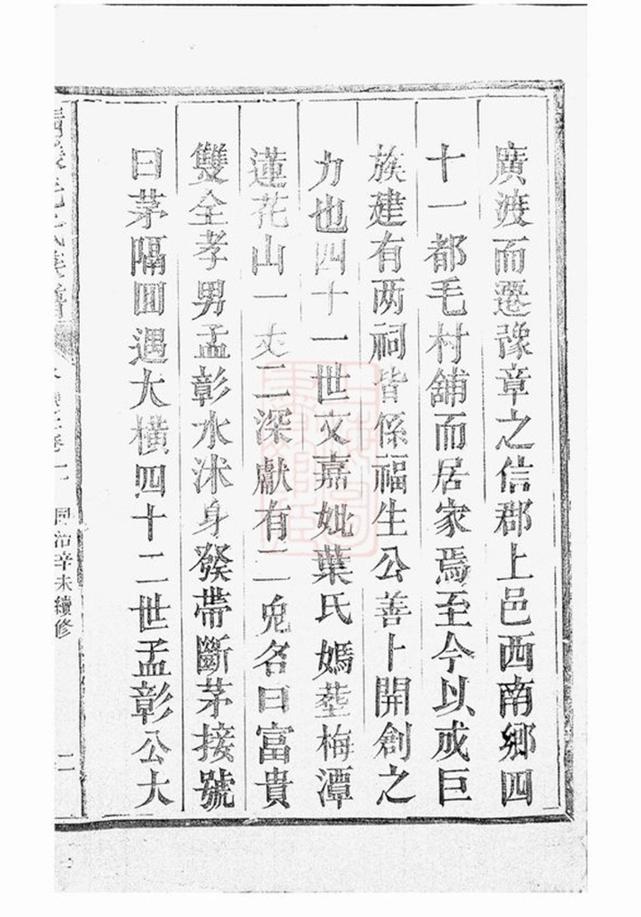 廣渡而遷豫章之信郡上邑西南鄉四
十一都毛村舖而居家焉至今以成巨
族建有两祠皆係福生公善卜開創之
力也四十一世文嘉妣葉氏媽塟梅潭
蓮花山一丈二深獻有二兆名曰富貴
雙全孝男孟彰水沭身發帶斷茅接號
曰茅隔囬遇大橫四十二世孟彰公大
毛氏族譜
同治辛未續修
二